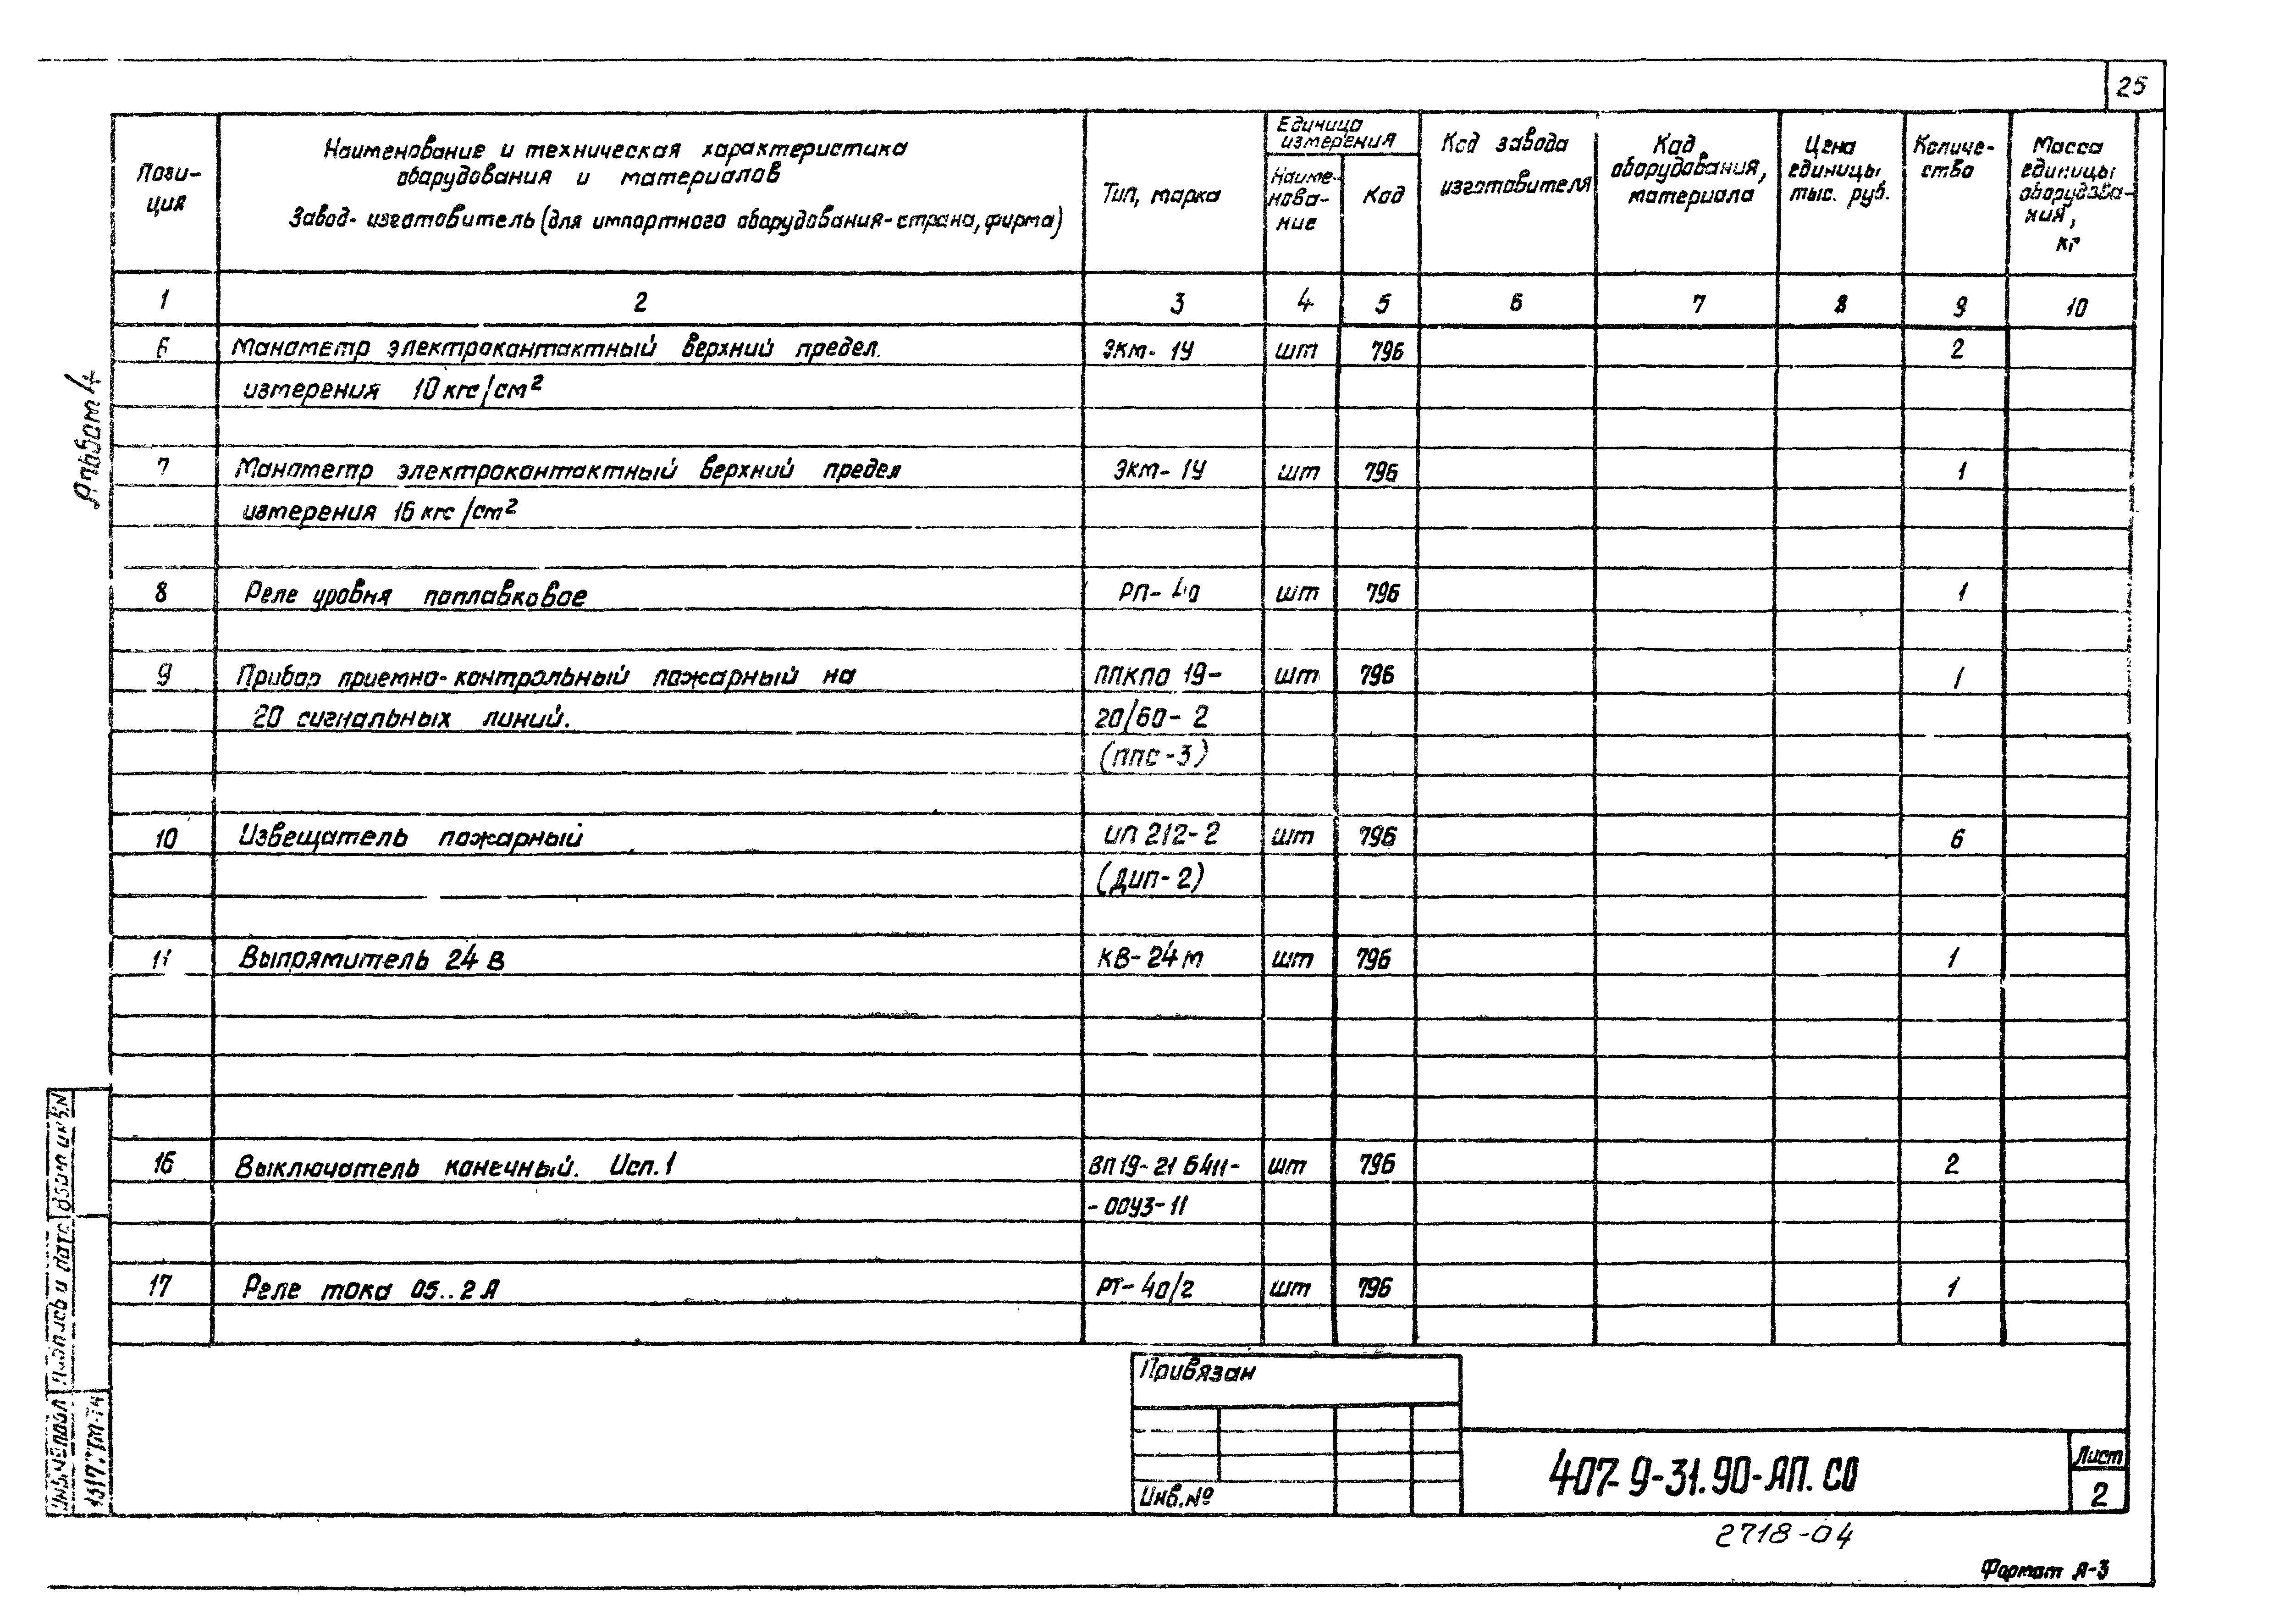 25
Альбом 4
Пози-
ция
Наименование и техническая характеристика
оборудования и материалов
Завод- изготовитель (для импортного оборудования-страна, фирма)
Тип, марка
Единица
измерения
Наиме-
нова-
ние
Код
Код завода
изготовителя
Код
оборудования,
материала
Цена
единицы
тыс. руб.
Количе-
ство
Масса
единицы
оборудова-
ния,
кг
1 2 3 4 5 6 7 8 9 10
6 Манометр электроконтактный верхний предел. ЭКМ-1У шт 796 2
измерения 10 кгс/см²
7 Манометр электроконтактный верхний предел ЭКМ-1У шт 796 1
измерения 16 кгс/см²
8 Реле уровня поплавковое РП-40 шт 796 1
9 Прибор приемно-контрольный пожарный на ППКПО 19- шт 796 1
20 сигнальных линий. 20/60-2
(ППС-3)
10 Извещатель пожарный ИП 212-2 шт 796 6
(ДИП-2)
11 Выпрямитель 24 В КВ-24М шт 796 1
16 Выключатель конечный. Исп.1 ВП19-21Б411- шт 796 2
-00У3-11
17 Реле тока 05..2А РТ-40/2 шт 796 1
Привязан
Инв.№
407-9-31.90-АП.СО
Лист
2
2718-04
Формат А-3
Инв.№ подл
Подпись и дата
Взам инв.№